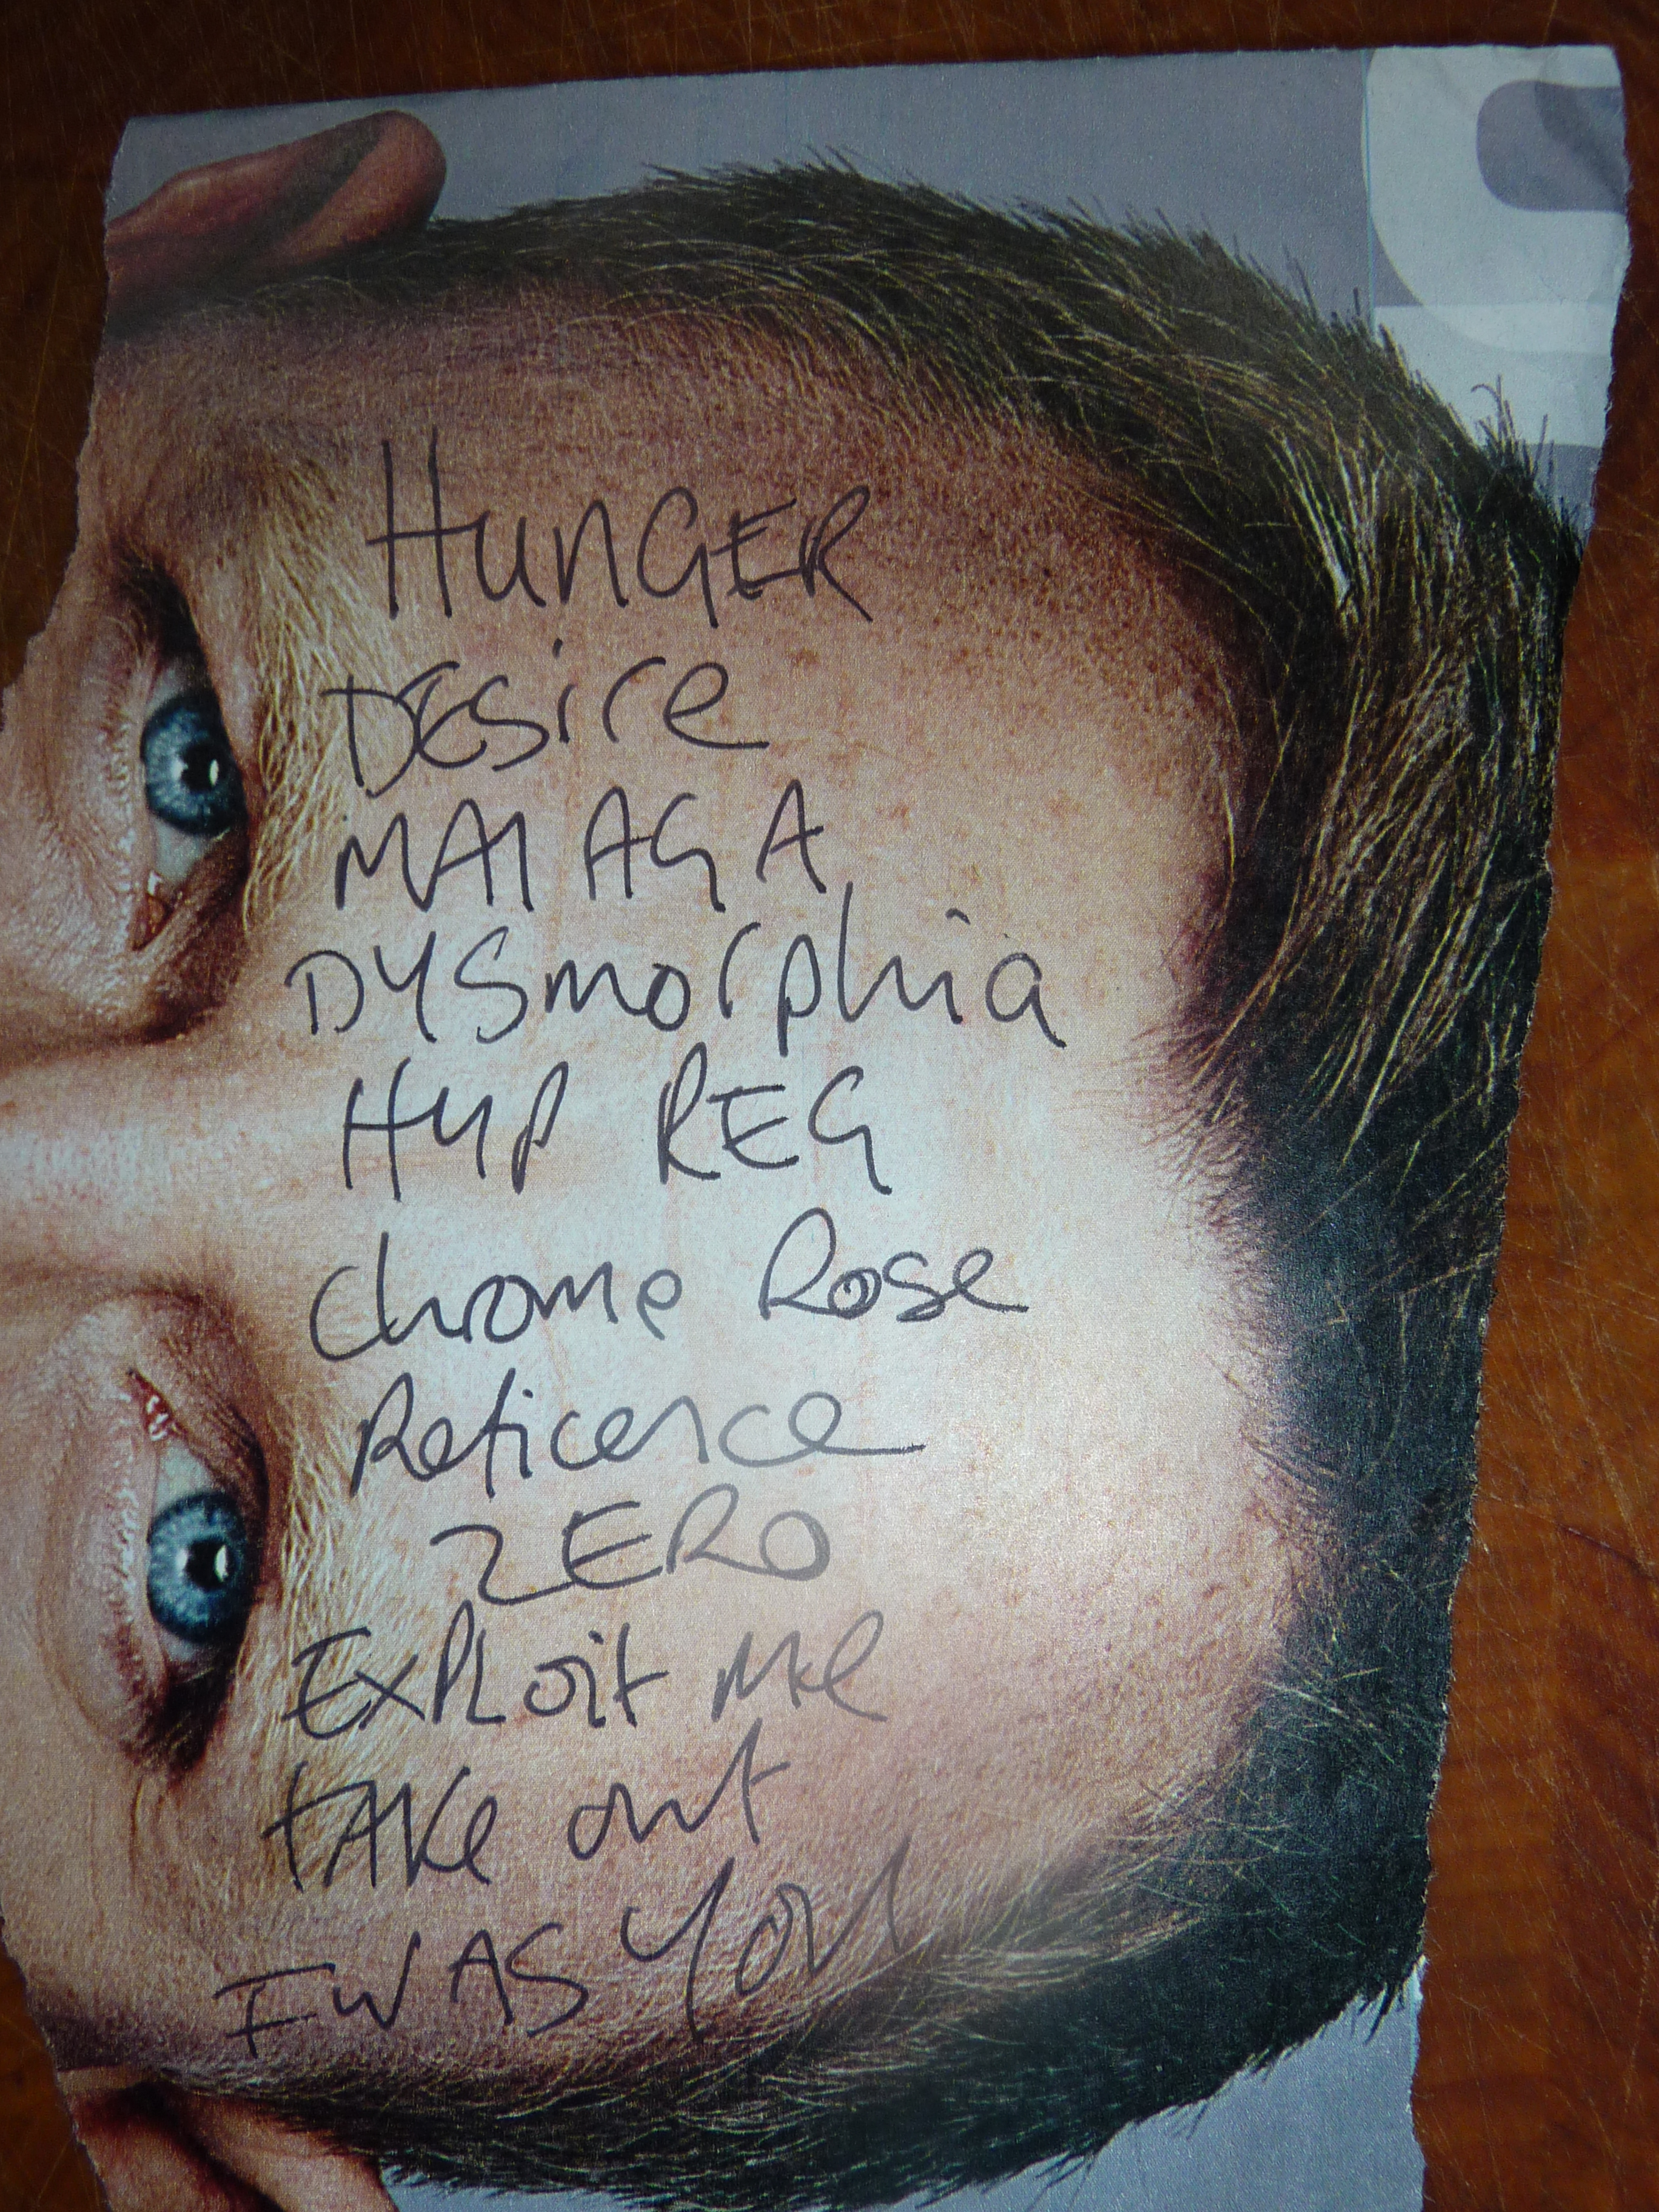 HUNGER
DESire
MALAGA
DYSmorphia
HYP REG
Chrome Rose
Reticence
ZERO
ExPLoit Me
tAKe out
I WAS YOU